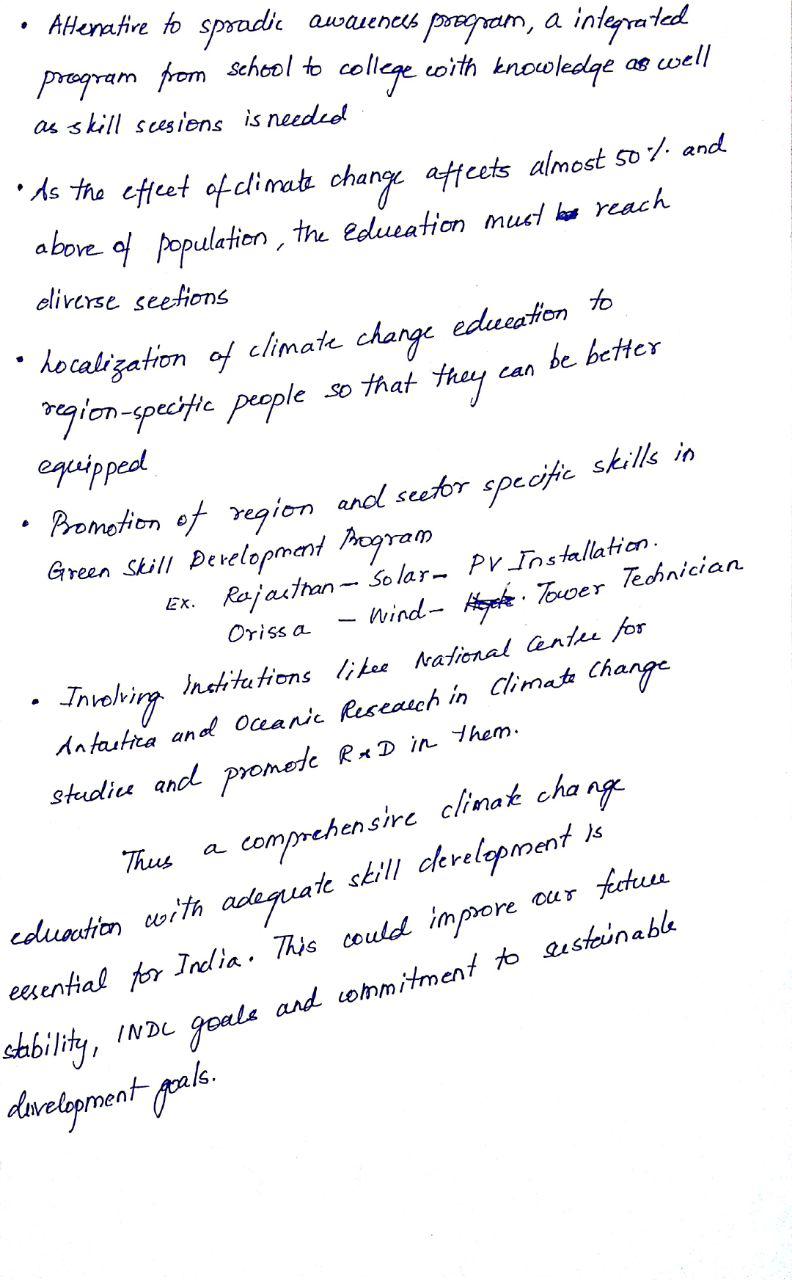 • Attenative to spradic awareness program, a integrated
program from school to college with knowledge as well
as skill sessions is needed
• As the effect of climate change affects almost 50% and
above of population, the education must reach
diverse sections
• Localization of climate change education to
region-specific people so that they can be better
equipped
• Promotion of region and sector specific skills in
Green Skill Development Program
Ex. Rajasthan - Solar - PV Installation.
Orissa - Wind - Tower Technician
• Involving Institutions like National Centre for
Antartica and Oceanic Research in Climate Change
studies and promote R&D in them.
Thus a comprehensive climate change
education with adequate skill development is
essential for India. This could improve our future
stability, INDC goals and commitment to sustainable
development goals.